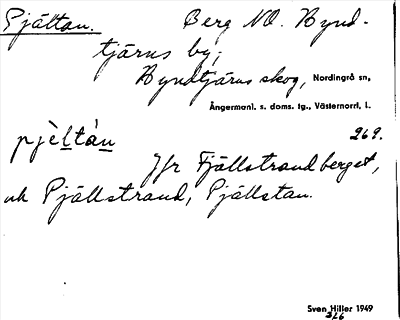 Pjältan. Berg NO. Rynd-
tjärns by,
Ryndtjärns skog, Nordingrå sn,
Ångermanl. s. doms. tg., Västernorrl. l.
pjèltàn 269.
Jfr Fjällstrandberget,
och Pjällstrand, Pjällstan.
Sven Hiller 1949